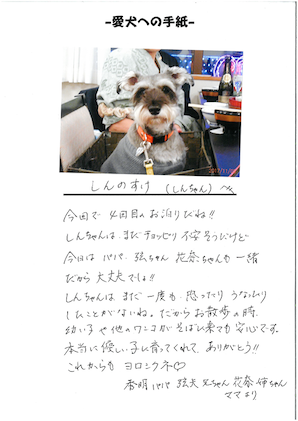 -愛犬への手紙-
しんのすけ (しんちゃん) へ
今回で 4回目のお泊りだね!!
しんちゃんは まだ チョッピリ 不安そうだけど
今日は パパ、弦ちゃん 花奈ちゃんも 一緒
だから 大丈夫でしょ!!
しんちゃんは まだ 一度も 怒ったり うなったり
したことがないね。だから お散歩の時
幼い子や他のワンコがそばに来ても 安心です。
本当に 優しい子に育ってくれて ありがとう!!
これからも ヨロシクネ♡
パパ 弦 兄ちゃん 花奈 姉ちゃん
ママより